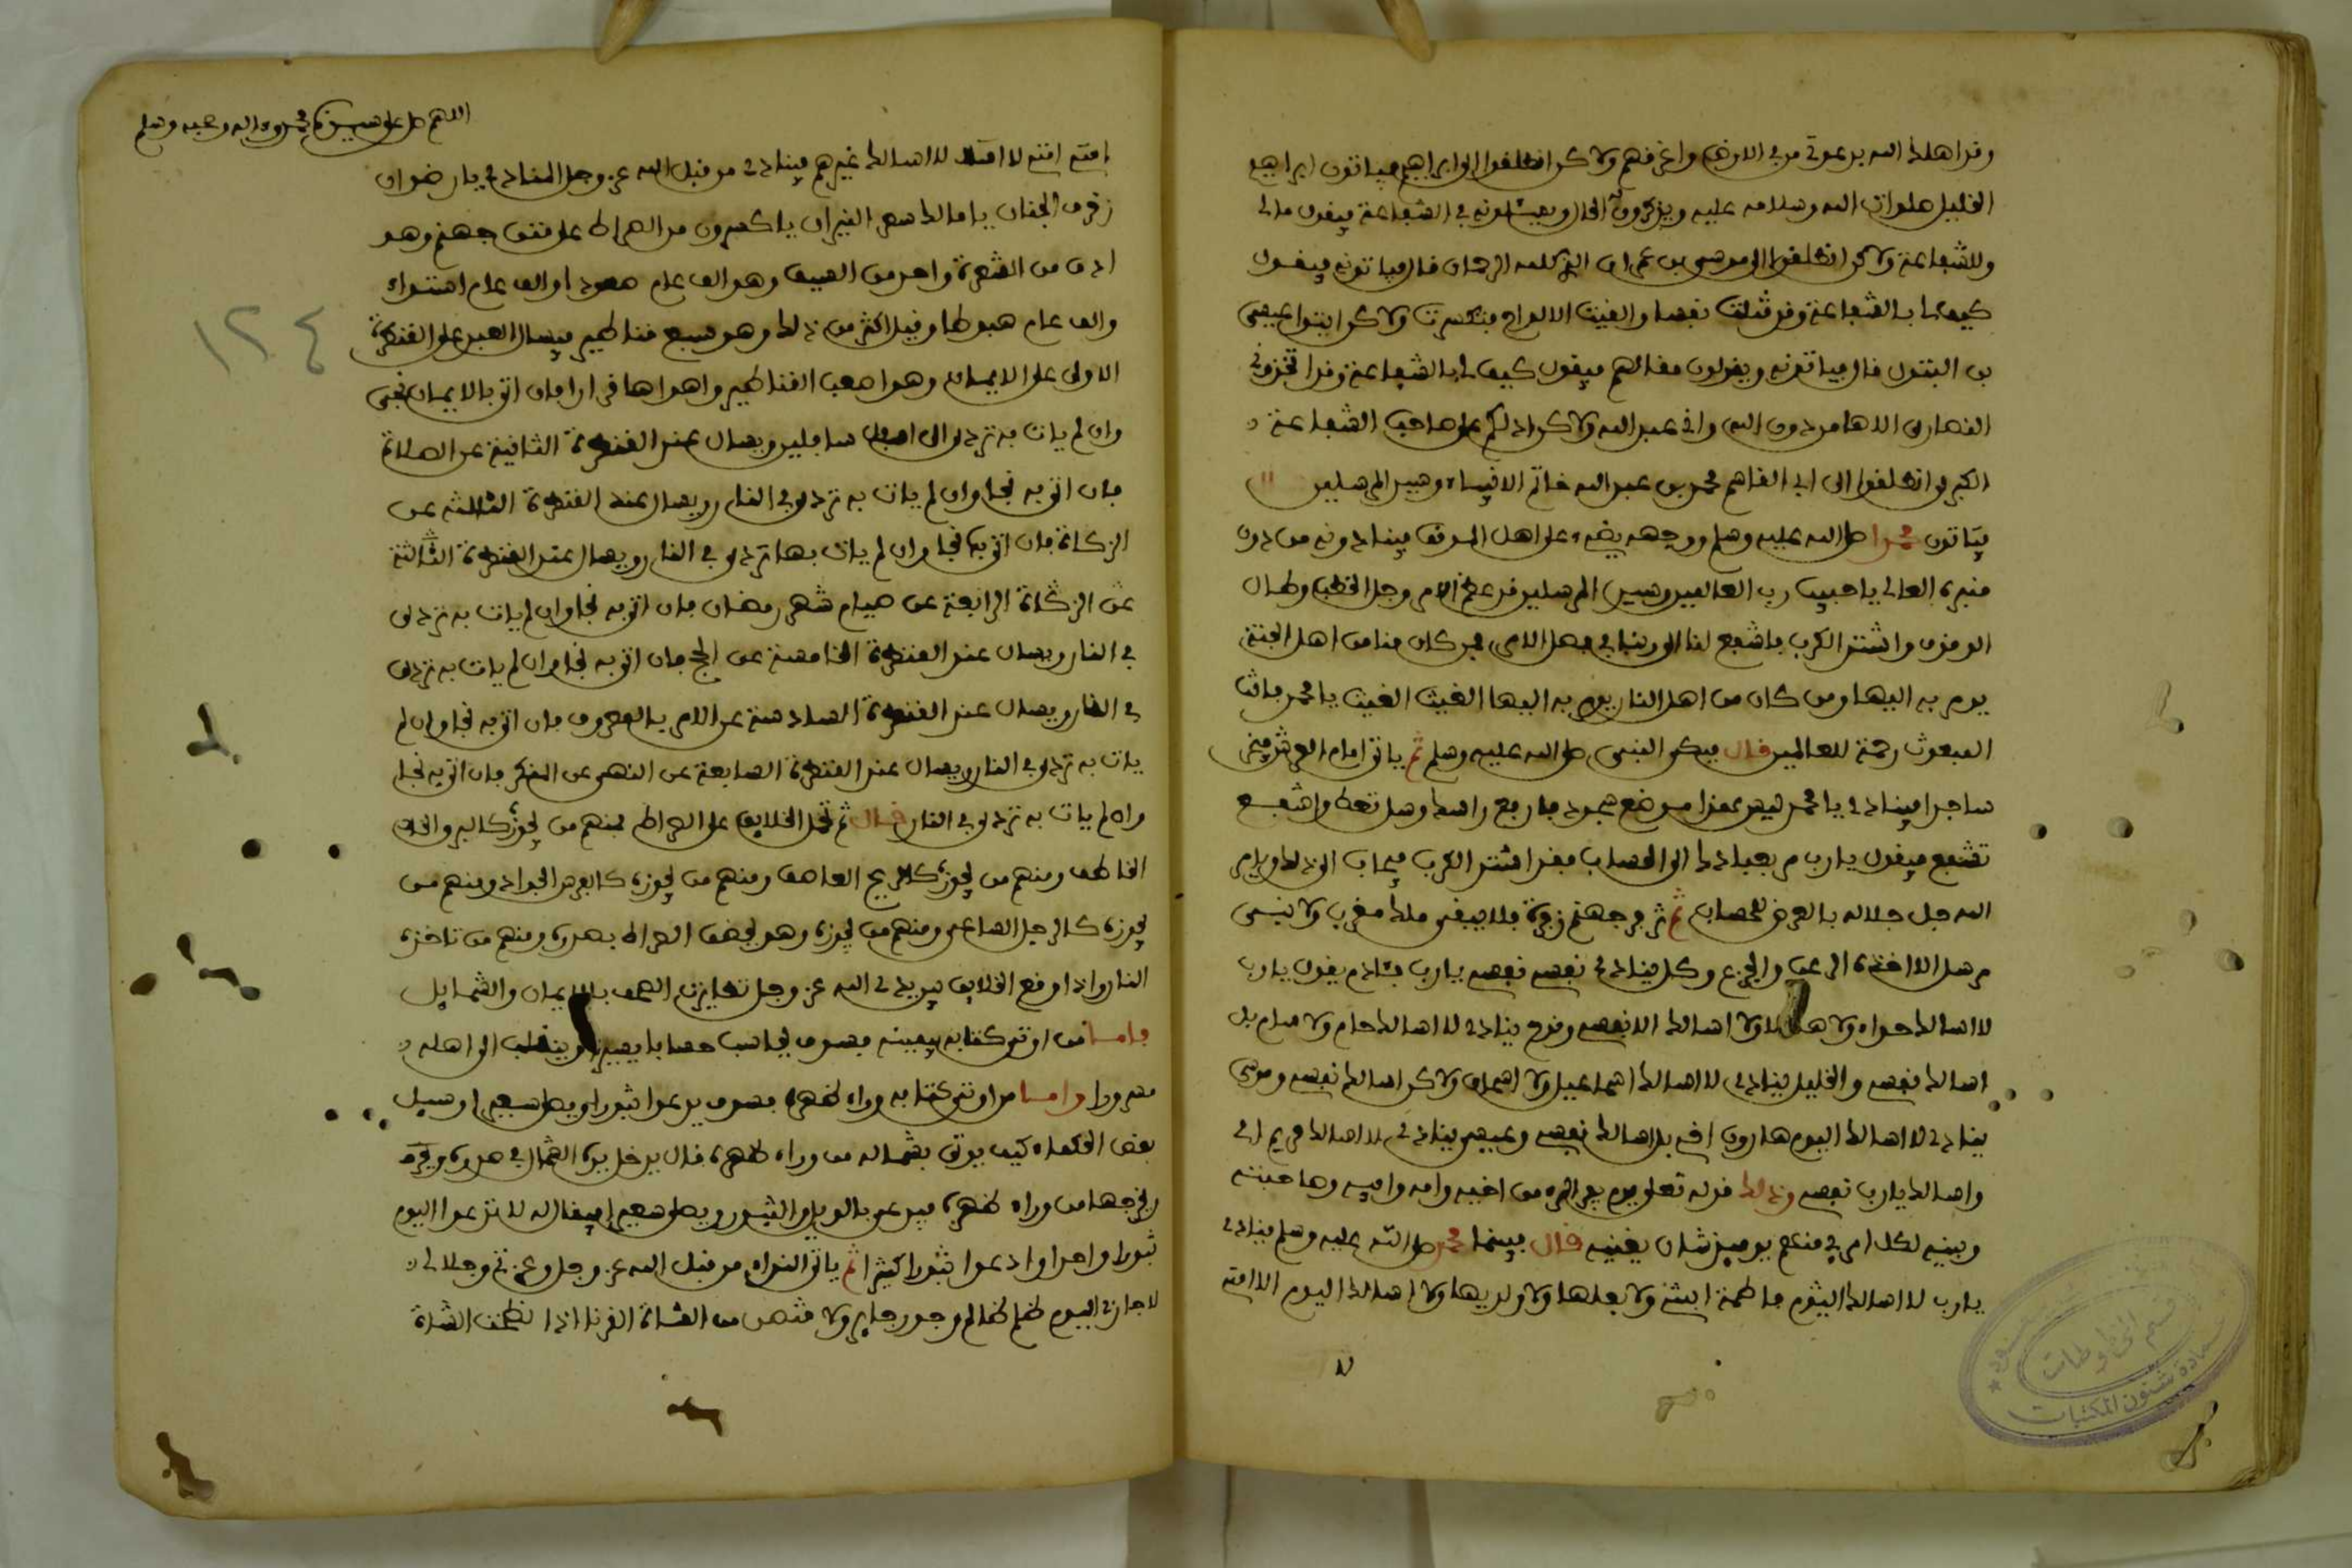 وقد اهلك الله بدعوتي من في الارض واغرقهم ولاكن انطلقوا الى ابراهيم فياتون ابراهيم
الخليل صلوات الله وسلامه عليه ويذكرون الحال ويسئلونه في الشفاعة فيقول مالي
وللشفاعة ولاكن انطلقوا الى موسى بن عمران الذي كلمه الرحمان قال فياتونه فيقول
كيف لي بالشفاعة وقد قتلت نفسا والقيت الالواح فتكسرت ولاكن ايتوا عيسى
بن البتول قال فياتونه ويقولون مقالهم فيقول كيف لي بالشفاعة وقد اتخذوني
النصارى الاها من دون الله واني عبد الله ولاكن ادلكم على صاحب الشفاعة
الكبرى انطلقوا الى ابي القاسم محمد بن عبد الله خاتم الانبياء وسيد المرسلين
فياتون محمدا صلى الله عليه وسلم ووجهه يضيء على اهل الموقف فينادونه من دون
منبره العالي يا حبيب رب العالمين وسيد المرسلين قد عظم الامر وجل الخطب وطال
الوقوف واشتد الكرب فاشفع لنا الى ربنا في فصل الامر فمن كان منا من اهل الجنة
يومر به اليها ومن كان من اهل النار يومر به اليها الغيث الغيث يا محمد فانت
المبعوث رحمة للعالمين قال فيبكي النبي صلى الله عليه وسلم ثم ياتي امام العرش فيخر
ساجدا فينادى يا محمد ليس هذا موضع سجود فارفع راسك وسل تعط واشفع
تشفع فيقول يا رب مر بعبادك الى الحساب فقد اشتد الكرب فيجاب الى ذلك ويامر
الله جل جلاله بالعرض للحساب ثم تزفر جهنم زفرة فلا يبقى ملك مقرب ولا نبي
مرسل الا اخذه الرعب والجزع وكل ينادي نفسي نفسي يا رب فئادم يقول يا رب
لا اسالك حواء ولا هابيل ولا اسالك الا نفسي ونوح ينادي لا اسالك حام ولا سام بل
اسالك نفسي والخليل ينادي لا اسالك اسماعيل ولا اسحاق ولاكن اسالك نفسي وموسى
ينادي لا اسالك اليوم هارون اخي بل اسالك نفسي وعيسى ينادي لا اسالك مريم امي
واسالك يا رب نفسي وذلك قوله تعلى يوم يفر المرء من اخيه وامه وابيه وصاحبته
وبنيه لكل امرئ منهم يوميذ شان يغنيه قال بينما محمد صلى الله عليه وسلم ينادي
يا رب لا اسالك اليوم فاطمة ابنتي ولا بعلها ولا ولديها ولا اسالك اليوم الا امتي
اللهم صل على سيدنا محمد وءاله وصحبه وسلم
امتي امتي لا اسالك غيرهم فينادى من قبل الله عز وجل المنادي يا رضوان
زخرف الجنان يا مالك سعر النيران يا كمدون مد الصراط على متن جهنم وهو
ادق من الشعرة واحد من السيف وهو الف عام صعود او الف عام استواء
والف عام هبوطا وقيل اكثر من ذلك وهو سبع قناطير فيسال العبد على القنطرة
الاولى على الايمان وهو اصعب القناطير واهواها قرارا فان اتى بالايمان نجى
وان لم يات به تردى الى اسفل سافلين ويسال عند القنطرة الثانية عن الصلاة
فان اتى به نجا وان لم يات به تردى في النار ويسال عند القنطرة الثالثة عن
الزكاة فان اتى بها نجا وان لم يات بها تردى في النار ويسال عند القنطرة الثالثة
عن الزكاة الرابعة عن صيام شهر رمضان فان اتى به نجا وان لم يات به تردى
في النار ويسال عند القنطرة الخامسة عن الحج فان اتى به نجا وان لم يات به تردى
في النار ويسال عند القنطرة السادسة عن الامر بالمعروف فان اتى به نجا وان لم
يات به تردى في النار ويسال عند القنطرة السابعة عن النهي عن المنكر فان اتى به نجا
وان لم يات به تردى في النار قال ثم تحمل الخلايق على الصراط فمنهم من يجوزه كالبرق
الخاطف ومنهم من يجوزه كالريح العاصف ومنهم من يجوزه كالفرس الجواد ومنهم من
يجوزه كالرجل الساعي ومنهم من يجوزه وهو يحضن الصراط بصدره ومنهم من تاخذه
النار واذا وقع الخلايق بين يدي الله عز وجل تطايرت الصحف بالايمان والشمايل
فاما من اوتي كتابه بيمينه فسوف يحاسب حسابا يسيرا وينقلب الى اهله
مسرورا واما من اوتي كتابه وراء ظهره فسوف يدعوا ثبورا ويصلى سعيرا وسيل
بعض الحكماء كيف يوتى بشماله من وراء ظهره قال يدخل يده الشمال في صدره
ويخرجها من وراء ظهره فيدعى بالويل والثبور ويصلى سعيرا فيقال له لا تدعوا اليوم
ثبورا واحدا وادعوا ثبورا كثيرا ثم ياتي النداء من قبل الله عز وجل وعزتي وجلالي
لا جازني اليوم ظلم ظالم وجور جاير ولا قتص من الشاة القرنا اذا نطحت الشاة
١٢٤
قسم المخطوطات
عمادة شئون المكتبات